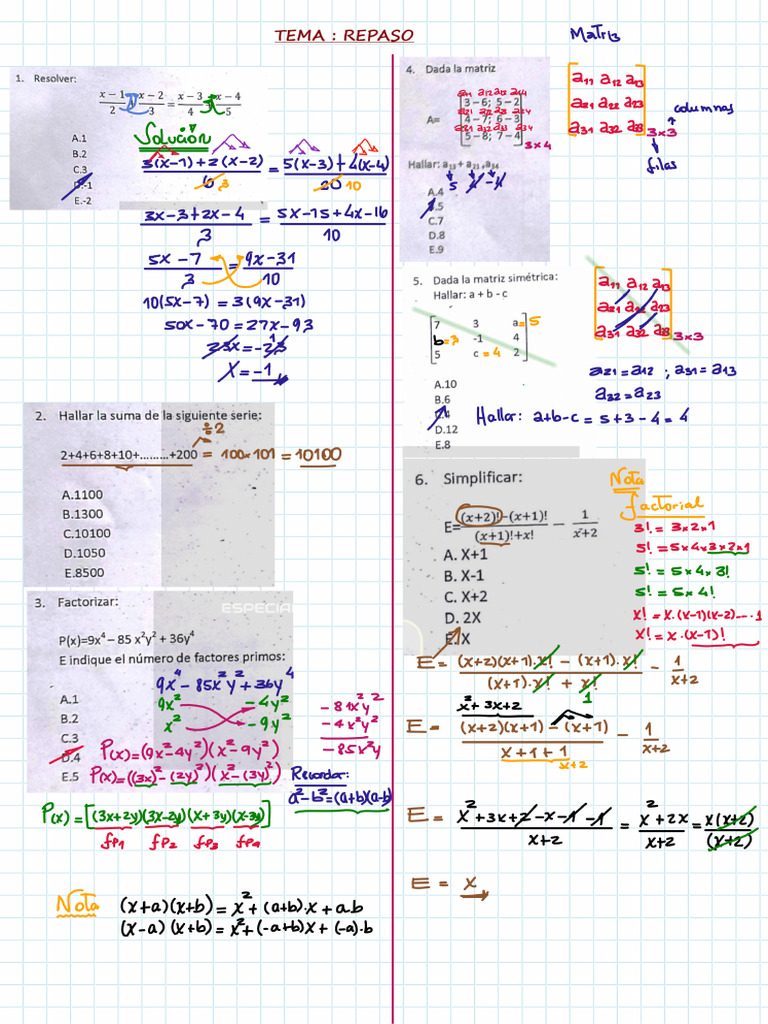 TEMA : REPASO
1. Resolver:
x − 1/2 + x − 2/3 = x − 3/4 + x − 4/5
A.1
B.2
C.3
D.-1
E.-2
Solución
3(x-1)+2(x-2)/6 3 = 5(x-3)+4(x-4)/20 10
3x-3+2x-4/3 = 5x-15+4x-16/10
5x-7/3 = 9x-31/10
10(5x-7) = 3(9x-31)
50x-70 = 27x-93
23x = -23 1
x = -1
2. Hallar la suma de la siguiente serie:
÷2
2+4+6+8+10+.........+200 = 100×101 = 10100
A.1100
B.1300
C.10100
D.1050
E.8500
3. Factorizar:
ESPECIA
P(x)=9x⁴ – 85 x²y² + 36y⁴
E indique el número de factores primos:
A.1
B.2
C.3
D.4
E.5
9x⁴ - 85x²y² + 36y⁴
9x² - 4y²
x² - 9y²
- 81x²y²
- 4x²y²
- 85x²y
P(x)=(9x²-4y²)(x²-9y²)
P(x)=((3x)²-(2y)²)(x²-(3y)²)
Recordar:
a²-b²=(a+b)(a-b)
P(x)=[(3x+2y)(3x-2y)(x+3y)(x-3y)]
fp1 fp2 fp3 fp4
Nota (x+a)(x+b) = x²+(a+b).x+a.b
(x-a)(x+b) = x²+(-a+b)x+(-a).b
Matriz
4. Dada la matriz
a11 a12 a13 a14
3 – 6; 5 – 2
a21 a22 a23 a24
A= 4 – 7; 6 – 3
a31 a32 a33 a34
5 – 8; 7 – 4
3×4
Hallar: a13 + a21 + a34
5 4 -4
A.4
B.5
C.7
D.8
E.9
a11 a12 a13
a21 a22 a23
a31 a32 a33 3×3
columnas
filas
5. Dada la matriz simétrica:
Hallar: a + b - c
7 3 a=5
b=3 -1 4
5 c=4 2
A.10
B.6
C.4
D.12
E.8
a11 a12 a13
a21 a22 a23
a31 a32 a33 3×3
a21 = a12 ; a31 = a13
a32 = a23
Hallar: a+b-c = 5+3-4 = 4
6. Simplificar:
E= (x+2)!−(x+1)!/(x+1)!+x! − 1/x+2
A. X+1
B. X-1
C. X+2
D. 2X
E. X
Nota
factorial
3! = 3×2×1
5! = 5×4×3×2×1
5! = 5×4×3!
5! = 5×4!
x! = x.(x-1)(x-2)....1
x! = x.(x-1)!
E = (x+2)(x+1).x! - (x+1).x!/(x+1).x! + x! - 1/x+2
1
x²+3x+2
E = (x+2)(x+1) - (x+1)/x+1+1 - 1/x+2
x+2
E = x²+3x+2-x-1-1/x+2 = x²+2x/x+2 = x(x+2)/(x+2)
E = x